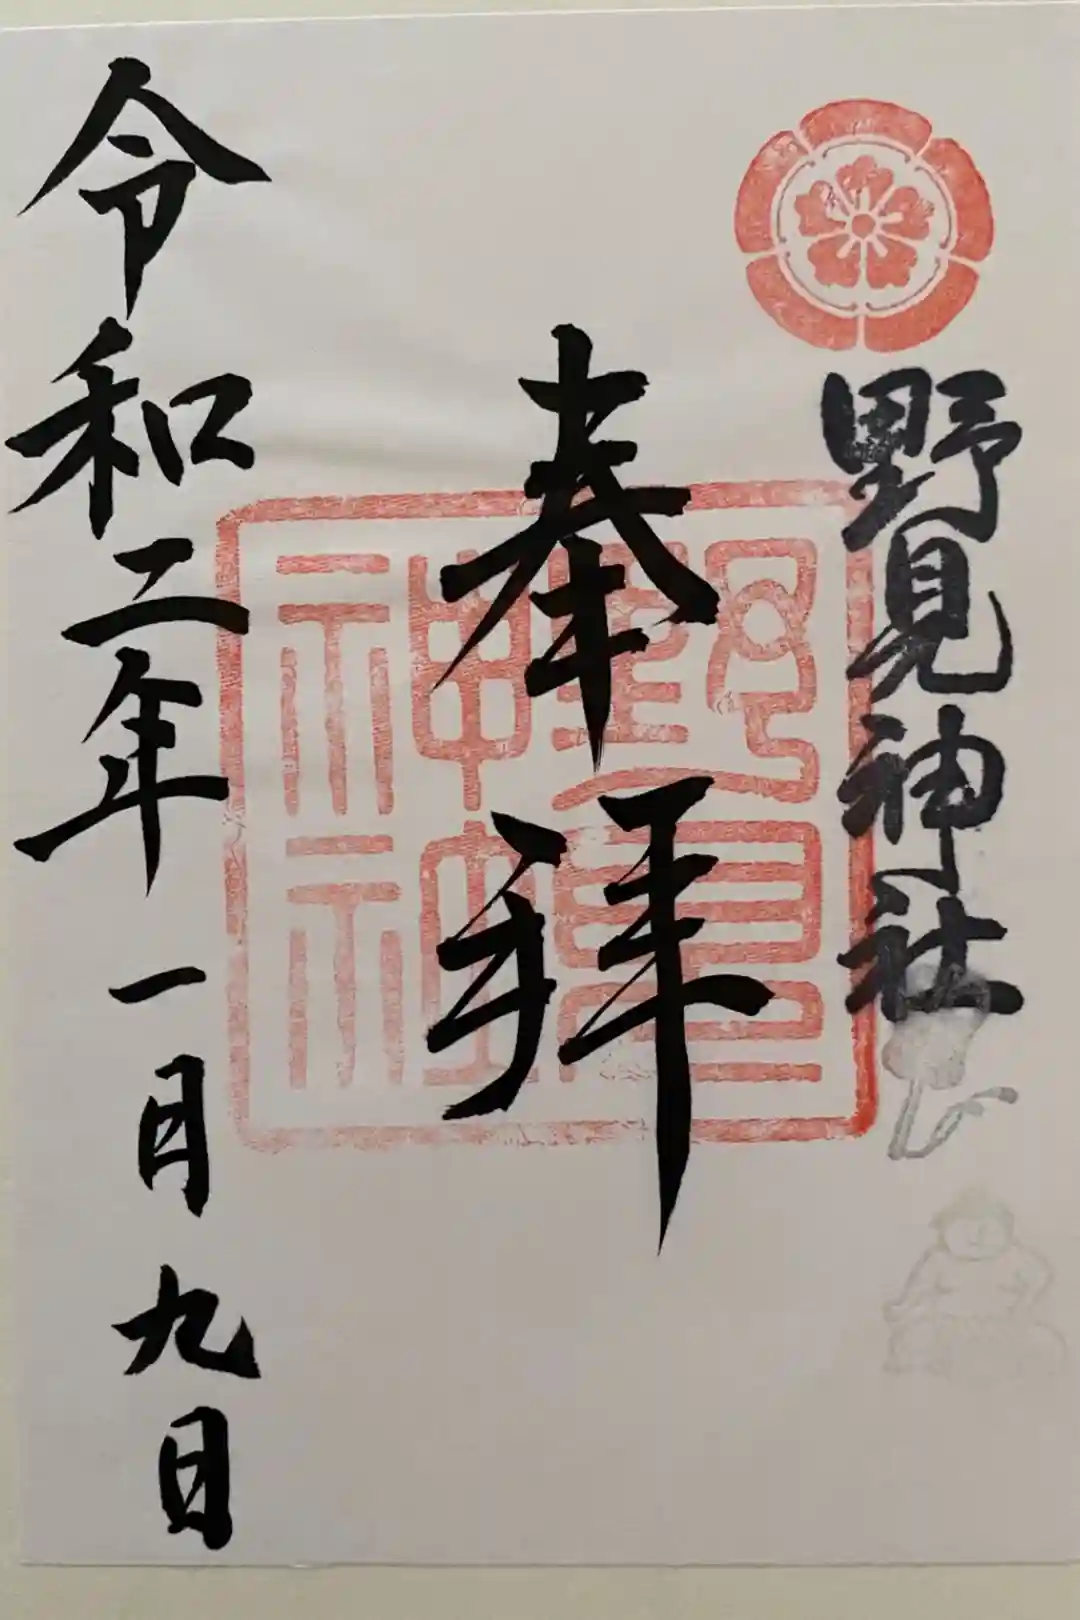 野見神社
奉拝
野見
神神
令和二年一月九日